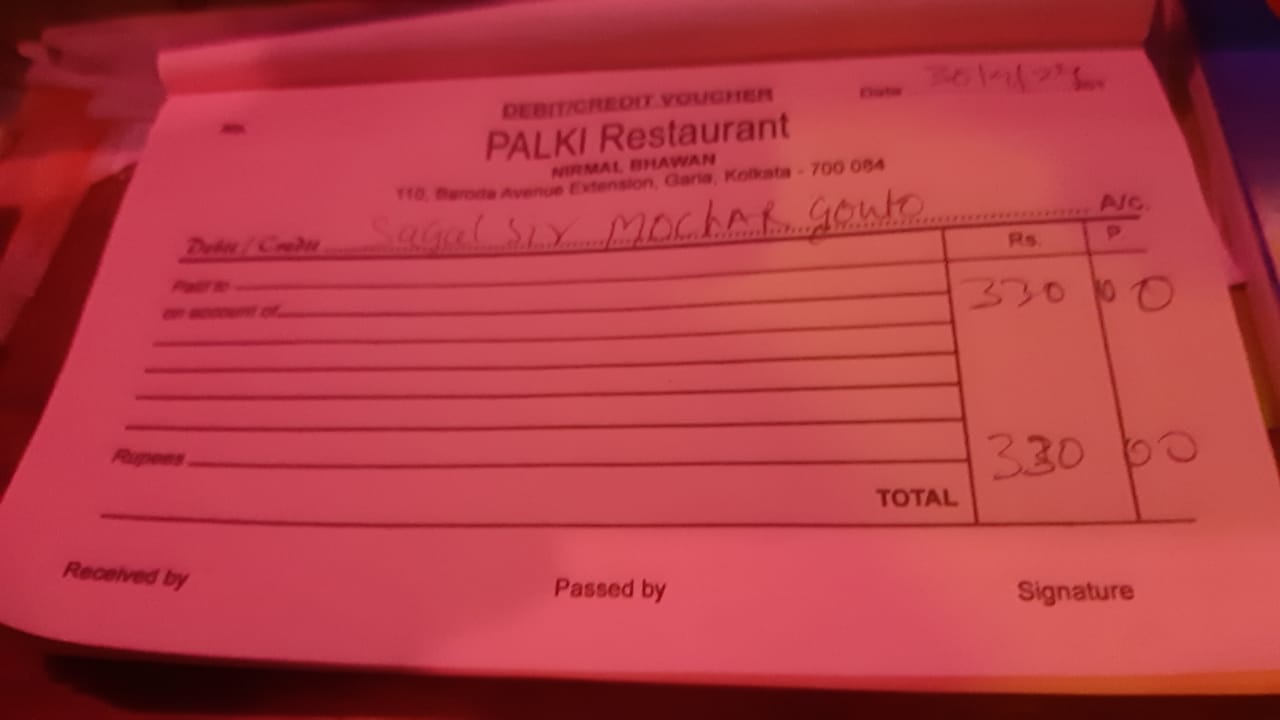 DEBIT/CREDIT VOUCHER
No.
Date
PALKI Restaurant
NIRMAL BHAWAN
110, Baroda Avenue Extension, Garia, Kolkata - 700 084
Debit / Credit Sagal Sir MOCHAR gonto A/c.
Rs. P.
Paid to
330 00
on account of
Rupees
330 00
TOTAL
Received by Passed by Signature